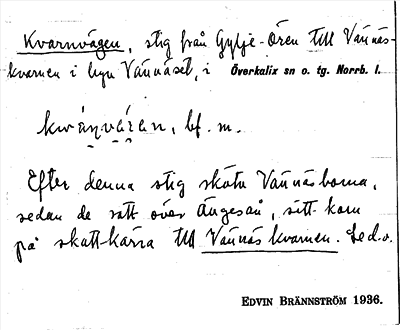 Kvarnvägen, stig från Gylje-Ören till Vännäs-
kvarnen i byn Vännäset, i Överkalix sn o. tg. Norrb. l.
bf. m.
Efter denna stig sköto Vännäsborna,
sedan de satt över Ängesån, sitt korn
på skott-kärra till Vännäskvarnen. Se d.o.
EDVIN BRÄNNSTRÖM 1936.